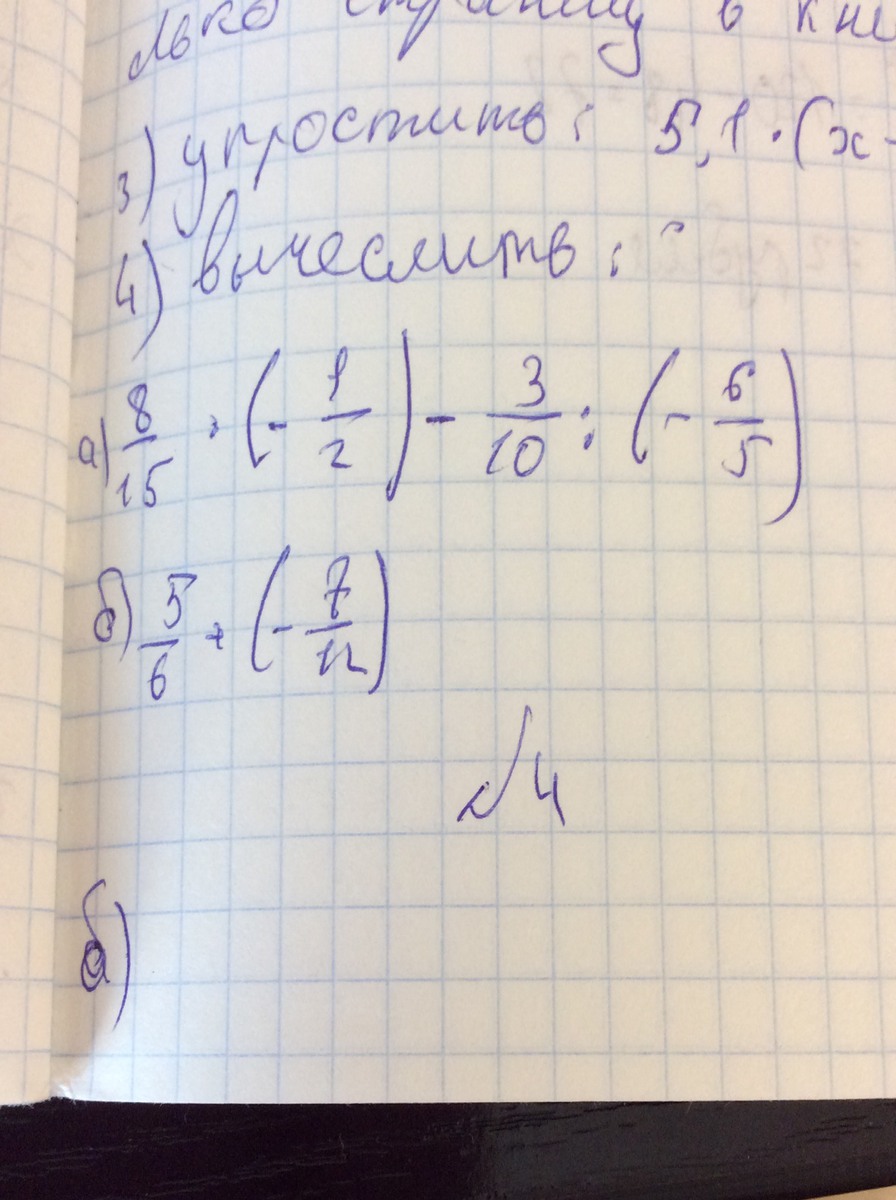 лько страниц в кни
3) упростить: 5,1 · (x-
4) вычеслить:
а) 8/15 · (- 1/2) - 3/10 : (- 6/5)
б) 5/6 + (- 7/12)
№4
б)